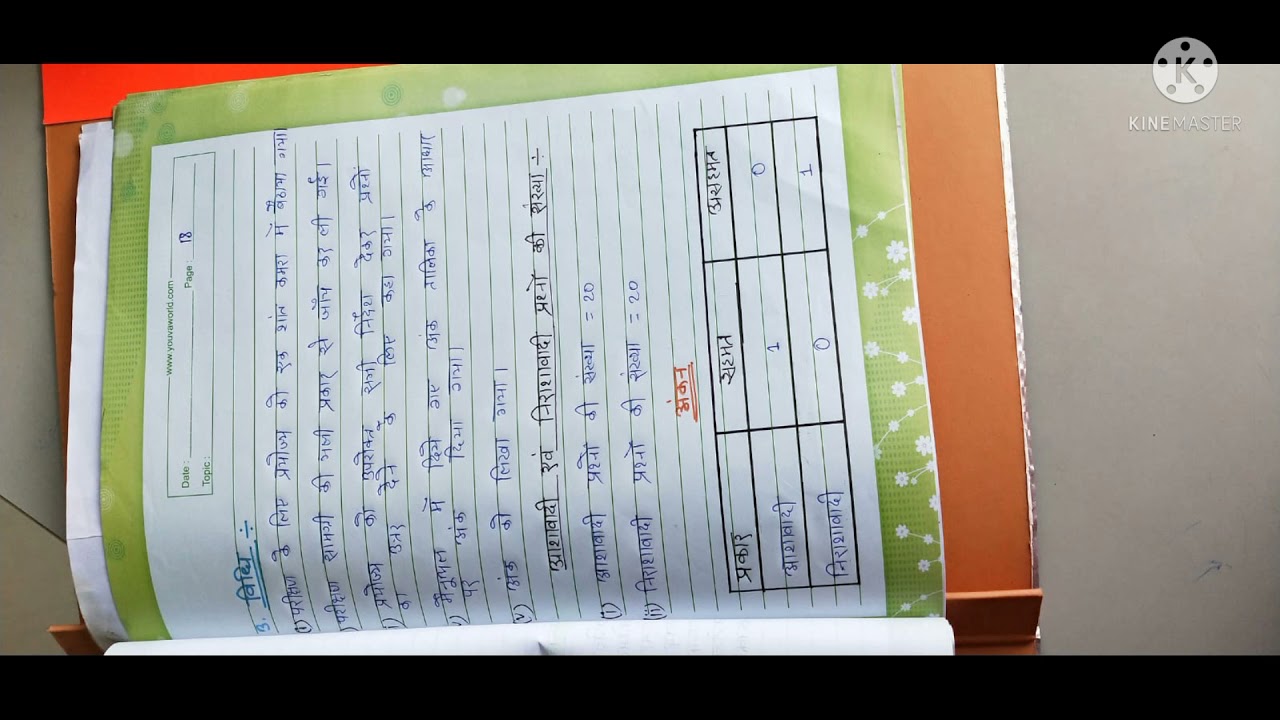 www.youvaworld.com
Date :
Page : 18
Topic :
3. विधि ÷
(i) परीक्षण के लिए प्रयोज्य को एक शांत कमरा में बैठाया गया
) परीक्षण सामग्री की भली प्रकार से जाँच कर ली गई।
i) प्रयोज्य को उपरोक्त सभी निर्देश देकर प्रश्नों
का उत्तर देने के लिए कहा गया।
v) मैनुअल में दिये गए अंक तालिका के आधार
पर अंक दिया गया।
v) अंक को लिखा गया।
आशावादी एवं निराशावादी प्रश्नों की संख्या ÷
(i) आशावादी प्रश्नों की संख्या = 20
(ii) निराशावादी प्रश्नों की संख्या = 20
अंकन
प्रकार सहमत असहमत
आशावादी 1 0
निराशावादी 0 1
KINEMASTER